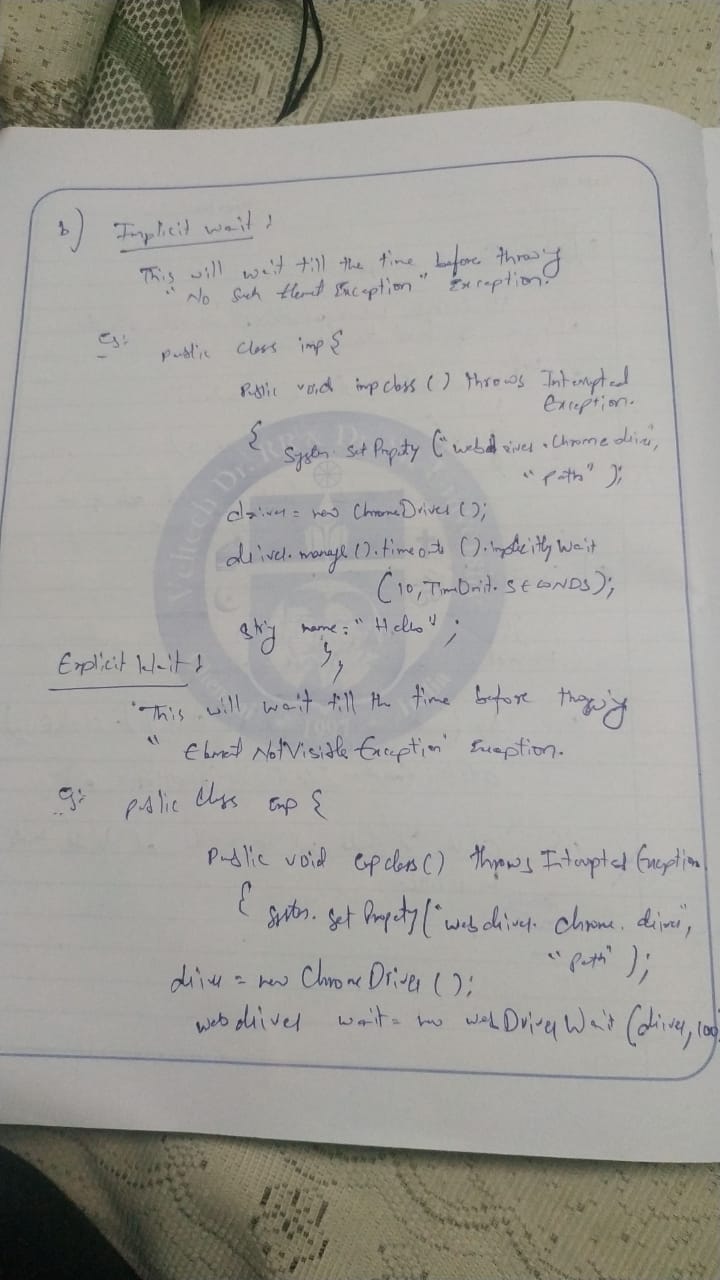 b) Implicit wait :
This will wait till the time before throwing
"No Such Element Exception" Exception.
Eg: public class imp {
Public void impclass () throws Interrupted
Exception.
{ System. Set Property ("webdriver . Chrome driver,
"path" );
driver = new ChromeDriver ();
driver. manage (). timeouts (). implicitly Wait
(10, TimeUnit. SECONDS);
String name = "Hello" ;
} }
Explicit Wait :
This will wait till the time before throwing
" Element NotVisible Exception" Exception.
Eg: public Class exp {
Public void expclass () throws Interrupted Exception
{ System. Set Property ("webdriver. Chrome. driver",
"path" );
driver = new Chrome Driver ();
web driver wait = new web Driver Wait (driver, 100)